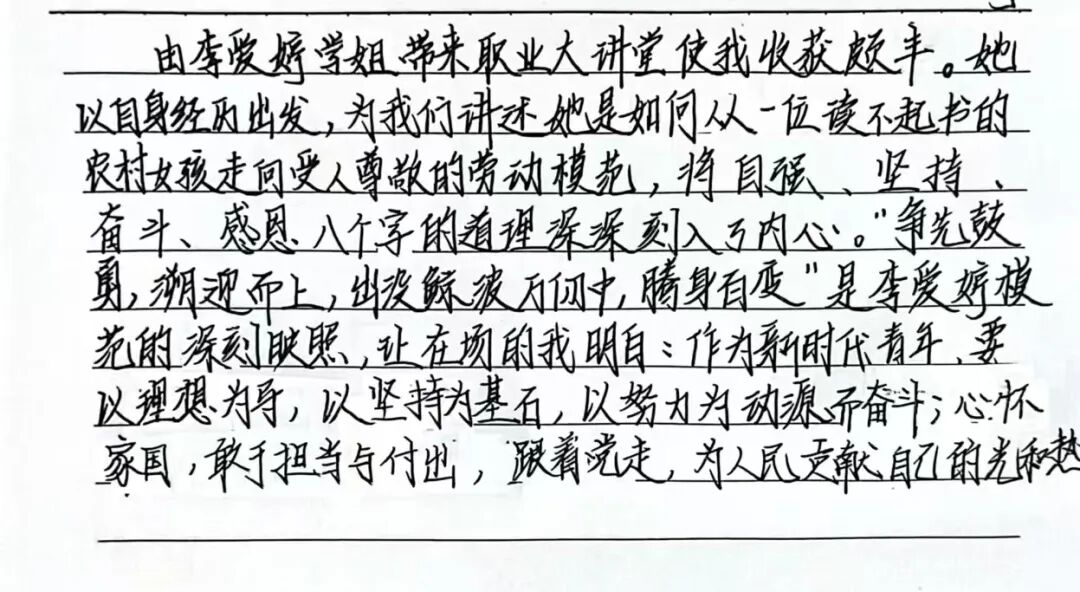 由李爱婷学姐带来职业大讲堂使我收获颇丰。她
以自身经历出发，为我们讲述她是如何从一位读不起书的
农村女孩走向受人尊敬的劳动模范，将自强、坚持、
奋斗、感恩八个字的道理深深刻入了内心。"争先鼓
勇，溯迎而上，出没鲸波万仞中，腾身百变"是李爱婷模
范的深刻映照，让在场的我明白：作为新时代青年，要
以理想为导，以坚持为基石，以努力为动源而奋斗；心怀
家国，敢于担当与付出，跟着党走，为人民贡献自己的光和热